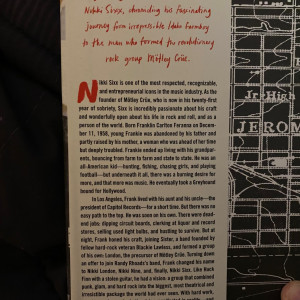 Nikki Sixx, chronicling his fascinating
journey from irrepressible Idaho farmboy
to the man who formed the revolutionary
rock group Mötley Crüe.
Nikki Sixx is one of the most respected, recognizable,
and entrepreneurial icons in the music industry. As the
founder of Mötley Crüe, who is now in his twenty-first
year of sobriety, Sixx is incredibly passionate about his craft
and wonderfully open about his life in rock and roll, and as a
person of the world. Born Franklin Carlton Feranna on December
11, 1958, young Frankie was abandoned by his father and
partly raised by his mother, a woman who was ahead of her time
but deeply troubled. Frankie ended up living with his grandparents,
bouncing from farm to farm and state to state. He was an
all-American kid—hunting, fishing, chasing girls, and playing
football—but underneath it all, there was a burning desire for
more, and that more was music. He eventually took a Greyhound
bound for Hollywood.
In Los Angeles, Frank lived with his aunt and his uncle—the
president of Capitol Records—for a short time. But there was no
easy path to the top. He was soon on his own. There were dead-
end jobs: dipping circuit boards, clerking at liquor and record
stores, selling used light bulbs, and hustling to survive. But at
night, Frank honed his craft, joining Sister, a band founded by
fellow hard-rock veteran Blackie Lawless, and formed a group
of his own: London, the precursor of Mötley Crüe. Turning down
an offer to join Randy Rhoads's band, Frank changed his name
to Nikki London, Nikki Nine, and, finally, Nikki Sixx. Like Huck
Finn with a stolen guitar, he had a vision: a group that combined
punk, glam, and hard rock into the biggest, most theatrical and
irresistible package the world had ever seen. With hard work,
Jr-High
JEROM